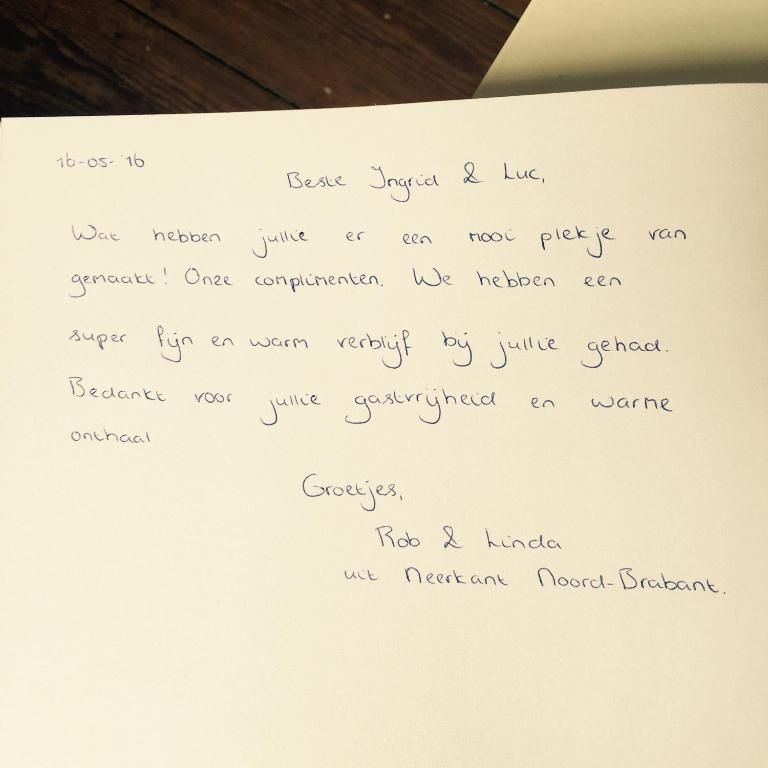 16-05-'16
Beste Ingrid & Luc,
Wat hebben jullie er een mooi plekje van
gemaakt! Onze complimenten. We hebben een
super fijn en warm verblijf bij jullie gehad.
Bedankt voor jullie gastvrijheid en warme
onthaal.
Groetjes,
Rob & Linda
uit Neerkant Noord-Brabant.